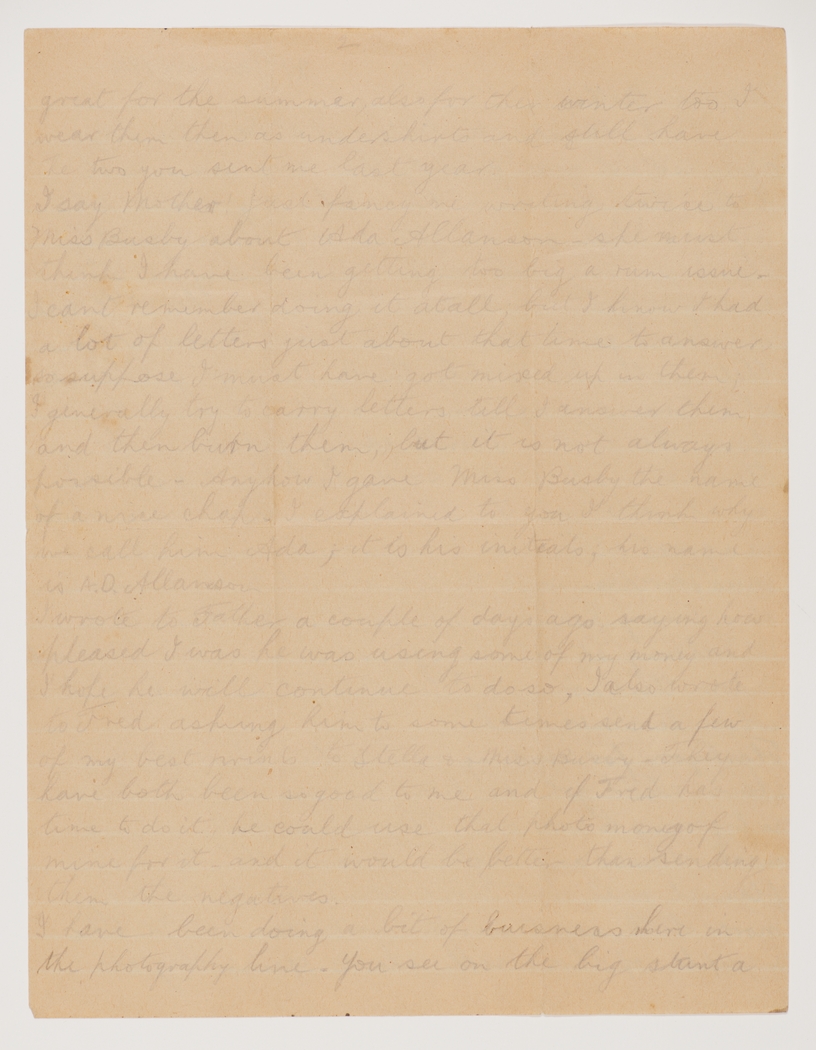 great for the summer, also for the winter too I
wear them then as undershirts still have
two you sent me last year.
I say Mother me writing twice to
Miss Busby about Ada Allanson - she must
think I have been getting too big a rum issue -
cant remember doing it atall, but I know I had
a lot of letters just about that time to answer
so suppose I must have got mixed up in them.
I generally try to carry letters till I answer them
and then burn them, but it is not always
possible - Anyhow I gave Miss Busby the name
of a nice chap - I explained to you I think why
we call him Ada, it is his initials, his name
is A.D. Allanson
I wrote to Father a couple of days ago saying how
pleased I was he was using some of my money and
I hope he will continue to do so, I also wrote
to Fred asking him to some times send a few
of my best prints to Stella & Miss Busby - They
have both been so good to me and if Fred has
time to do it he could use that photo money of
mine for it - and it would be better than sending
them the negatives.
I have been doing a bit of buisness here in
the photography line - You see on the big stunt a